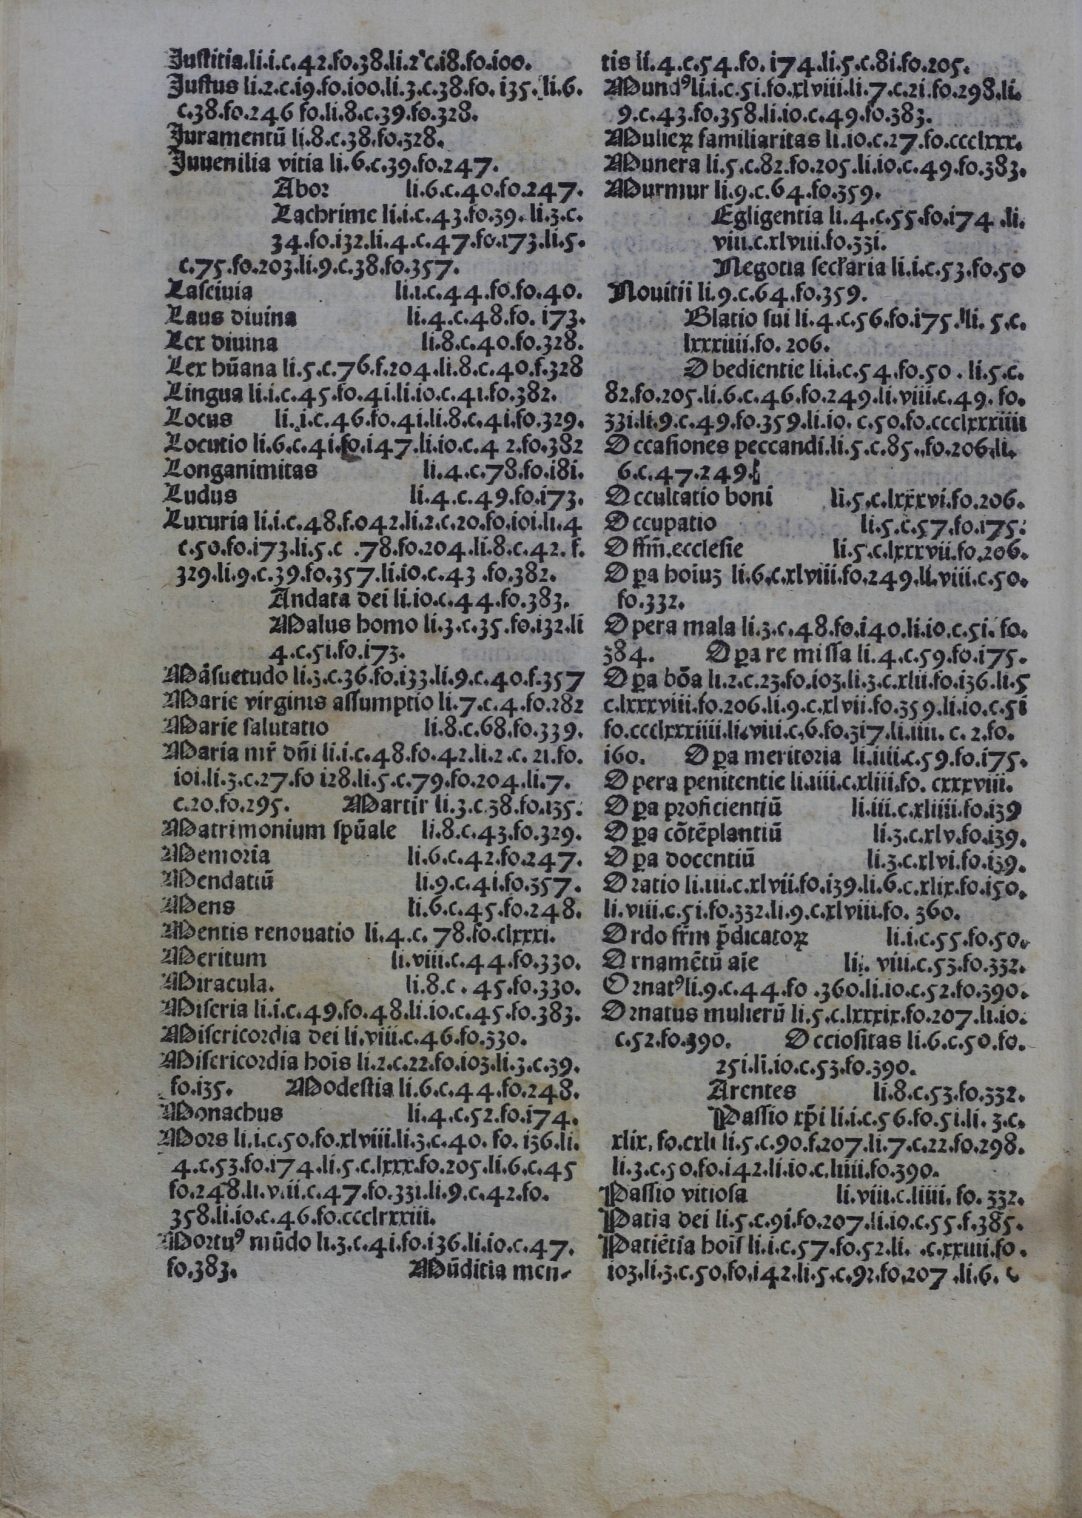 Iuſtitia.li.i.c.42.fo.38.li.2 c.i8.fo.ioo.
Iuſtus li.2.c.i9.fo.ioo.li.3.c.38.fo. i35.li.6.
c.38.fo.246 fo.li.8.c.39.fo.328.
Iuramentū li.8.c.38.fo.328.
Iuuenilia vitia li.6.c.39.fo.247.
Aboꝛ li.6.c.40.fo.247.
Lachrime li.i.c.43.fo.39. li.3.c.
34.fo.i32.li.4.c.47.fo.i73.li.5.
c.75.fo.203.li.9.c.38.fo.357.
Laſciuia li.i.c.44.fo.fo.40.
Laus diuina li.4.c.48.fo. i73.
Lex diuina li.8.c.40.fo.328.
Lex hūana li.5.c.76.f.204.li.8.c.40.f.328
Lingua li.i.c.45.fo.4i.li.io.c.4i.fo.382.
Locus li.i.c.46.fo.4i.li.8.c.4i.fo.329.
Locutio li.6.c.4i.fo.i47.li.io.c.4 2.fo.382
Longanimitas li.4.c.78.fo.i8i.
Ludus li.4.c.49.fo.i73.
Luxuria li.i.c.48.f.042.li.2.c.20.fo.ioi.li.4
c.50.fo.i73.li.5.c .78.fo.204.li.8.c.42. f.
329.li.9.c.39.fo.357.li.io.c.43 .fo.382.
Andata dei li.io.c.44.fo.383.
Malus homo li.3.c.35.fo.i32.li
4.c.5i.fo.i73.
Māſuetudo li.3.c.36.fo.i33.li.9.c.40.f.357
Marie virginis aſſumptio li.7.c.4.fo.282
Marie ſalutatio li.8.c.68.fo.339.
Maria mr̄ dn̄i li.i.c.48.fo.42.li.2.c. 2i.fo.
ioi.li.3.c.27.fo i28.li.5.c.79.fo.204.li.7.
c.20.fo.295. Martir li.3.c.38.fo.i35.
Matrimonium ſpūale li.8.c.43.fo.329.
Memoꝛia li.6.c.42.fo.247.
Mendatiū li.9.c.4i.fo.357.
Mens li.6.c.45.fo.248.
Mentis renouatio li.4.c. 78.fo.clxxxi.
Meritum li.viii.c.44.fo.330.
Miracula. li.8.c. 45.fo.330.
Miſeria li.i.c.49.fo.48.li.io.c.45.fo.383.
Miſericoꝛdia dei li.viii.c.46.fo.330.
Miſericoꝛdia hoīs li.2.c.22.fo.io3.li.3.c.39.
fo.i35. Modeſtia li.6.c.44.fo.248.
Monachus li.4.c.52.fo.i74.
Moꝛs li.i.c.50.fo.xlviii.li.3.c.40. fo. i36.li.
4.c.53.fo.i74.li.5.c.lxxx.fo.205.li.6.c.45
fo.248.li.v.ii.c.47.fo.331.li.9.c.42.fo.
358.li.io.c.46.fo.ccclxxxiii.
Moꝛtuꝰ mūdo li.3.c.4i.fo.i36.li.io.c.47.
fo.383. Mūditia men-
tis li.4.c.54.fo. i74.li.5.c.8i.fo.205.
Mundꝰli.i.c.5i.fo.xlviii.li.7.c.2i.fo.298.li.
9.c.43.fo.358.li.io.c.49.fo.383.
Mulieꝝ familiaritas li.io.c.27.fo.ccclxxx.
Munera li.5.c.82.fo.205.li.io.c.49.fo.383.
Murmur li.9.c.64.fo.359.
Egligentia li.4.c.55.fo.i74 .li.
viii.c.xlviii.fo.33i.
Negotia ſecl̄aria li.i.c.53.fo.50
Nouitii li.9.c.64.fo.359.
Blatio ſui li.4.c.56.fo.i75.li. 5.c.
lxxxiiii.fo. 206.
Obedientie li.i.c.54.fo.50 . li.5.c.
82.fo.205.li.6.c.46.fo.249.li.viii.c.49. fo.
33i.li.9.c.49.fo.359.li.io. c.50.fo.ccclxxxiiii
Occaſiones peccandi.li.5.c.85.fo.206.li.
6.c.47.249.
Occultatio boni li.5.c.lxxxvi.fo.206.
Occupatio li.5.c.57.fo.i75.
Offm̄.eccleſie li.5.c.lxxxvii.fo.206.
Oꝑa hoiuꝫ li.6.c.xlviii.fo.249.li.viii.c.50.
fo.332.
Opera mala li.3.c.48.fo.i40.li.io.c.5i. fo.
384. Oꝑa re miſſa li.4.c.59.fo.i75.
Oꝑa bōa li.2.c.23.fo.io3.li.3.c.xlii.fo.i36.li.5
c.lxxxviii.fo.206.li.9.c.xlvii.fo.359.li.io.c.5i
fo.ccclxxxiiii.li.viii.c.6.fo.3i7.li.iiii. c. 2.fo.
i60. Oꝑa meritoꝛia li.iiii.c.59.fo.i75.
Opera penitentie li.iiii.c.xliii.fo. cxxxviii.
Oꝑa pꝛoficientiū li.iii.c.xliiii.fo.i39
Oꝑa cōtēplantiū li.3.c.xlv.fo.i39.
Oꝑa docentiū li.3.c.xlvi.fo.i39.
Oꝛatio li.iii.c.xlvii.fo.i39.li.6.c.xlix.fo.i50.
li.viii.c.5i.fo.332.li.9.c.xlviii.fo. 360.
Oꝛdo fr̄m p̄dicatoꝝ li.i.c.55.fo.50.
Oꝛnamētū aīe li. viii.c.53.fo.332.
Oꝛnatꝰli.9.c.44.fo .360.li.io.c.52.fo.390.
Oꝛnatus mulierū li.5.c.lxxxix.fo.207.li.io.
c.52.fo.390. Occioſitas li.6.c.50.fo.
25i.li.io.c.53.fo.390.
Arentes li.8.c.53.fo.332.
Paſſio xp̄i li.i.c.56.fo.5i.li. 3.c.
xlix. fo.cxli li.5.c.90.f.207.li.7.c.22.fo.298.
li.3.c.50.fo.i42.li.io.c.liiii.fo.390.
Paſſio vitioſa li.viii.c.liiii. fo. 332.
Patia dei li.5.c.9i.fo.207.li.io.c.55.f.385.
Patiētia hoiſ li.i.c.57.fo.52.li. .c.xxiiii.fo.
io3.li.3.c.50.fo.i42.li.5.c.92.fo.207 .li.6. c